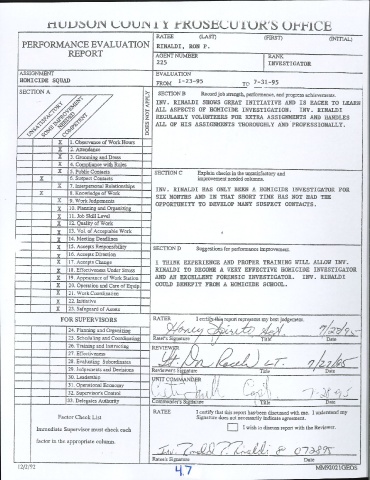 HUDSON COUNTY PROSECUTOR'S OFFICE
PERFORMANCE EVALUATION
REPORT
RATEE (LAST) (FIRST) (INITIAL)
RINALDI, RON P.
AGENT NUMBER
225
RANK
INVESTIGATOR
ASSIGNMENT
HOMICIDE SQUAD
EVALUATION
FROM 1-23-95 TO 7-31-95
SECTION A
UNSATISFACTORY
SOME IMPROVEMENT
COMPETENT
DOES NOT APPLY
X 1. Observance of Work Hours
X 2. Attendance
X 3. Grooming and Dress
X 4. Compliance with Rules
X 5. Public Contacts
X 6. Suspect Contacts
X 7. Interpersonal Relationships
X 8. Knowledge of Work
X 9. Work Judgements
X 10. Planning and Organizing
X 11. Job Skill Level
X 12. Quality of Work
X 13. Vol. of Acceptable Work
X 14. Meeting Deadlines
X 15. Accepts Responsibility
X 16. Accepts Direction
X 17. Accepts Change
X 18. Effectiveness Under Stress
X 19. Appearance of Work Station
X 20. Operation and Care of Equip.
X 21. Work Coordination
X 22. Initiative
X 23. Safeguard of Assets
FOR SUPERVISORS
24. Planning and Organizing
25. Scheduling and Coordinating
26. Training and Instructing
27. Effectiveness
28. Evaluating Subordinates
29. Judgements and Decisions
30. Leadership
31. Operational Economy
32. Supervisors Control
33. Delegates Authority
Factor Check List
Immediate Supervisor must check each
factor in the appropriate column.
SECTION B Record job strength, performance, and progress achievements.
INV. RINALDI SHOWS GREAT INITIATIVE AND IS EAGER TO LEARN
ALL ASPECTS OF HOMICIDE INVESTIGATION. INV. RINALDI
REGULARLY VOLUNTEERS FOR EXTRA ASSIGNMENTS AND HANDLES
ALL OF HIS ASSIGNMENTS THOROUGHLY AND PROFESSIONALLY.
SECTION C Explain checks in the unsatisfactory and
improvement needed columns.
INV. RINALDI HAS ONLY BEEN A HOMICIDE INVESTIGATOR FOR
SIX MONTHS AND IN THAT SHORT TIME HAS NOT HAD THE
OPPORTUNITY TO DEVELOP MANY SUSPECT CONTACTS.
SECTION D Suggestions for performance improvement.
I THINK EXPERIENCE AND PROPER TRAINING WILL ALLOW INV.
RINALDI TO BECOME A VERY EFFECTIVE HOMICIDE INVESTIGATOR
AND AN EXCELLENT FORENSIC INVESTIGATOR. INV. RINALDI
COULD BENEFIT FROM A HOMICIDE SCHOOL.
RATER I certify this report represents my best judgement.
7/28/95
Rater's Signature Title Date
REVIEWER
Reviewer's Signature Title Date
UNIT COMMANDER
Commander's Signature Title Date
RATEE I certify that this report has been discussed with me. I understand my
Signature does not necessarily indicate agreement.
I wish to discuss report with the Reviewer.
Inv. Ronald P. Rinaldi 072895
Ratee's Signature Date
12/2/92 4.7 MM92021GEOS